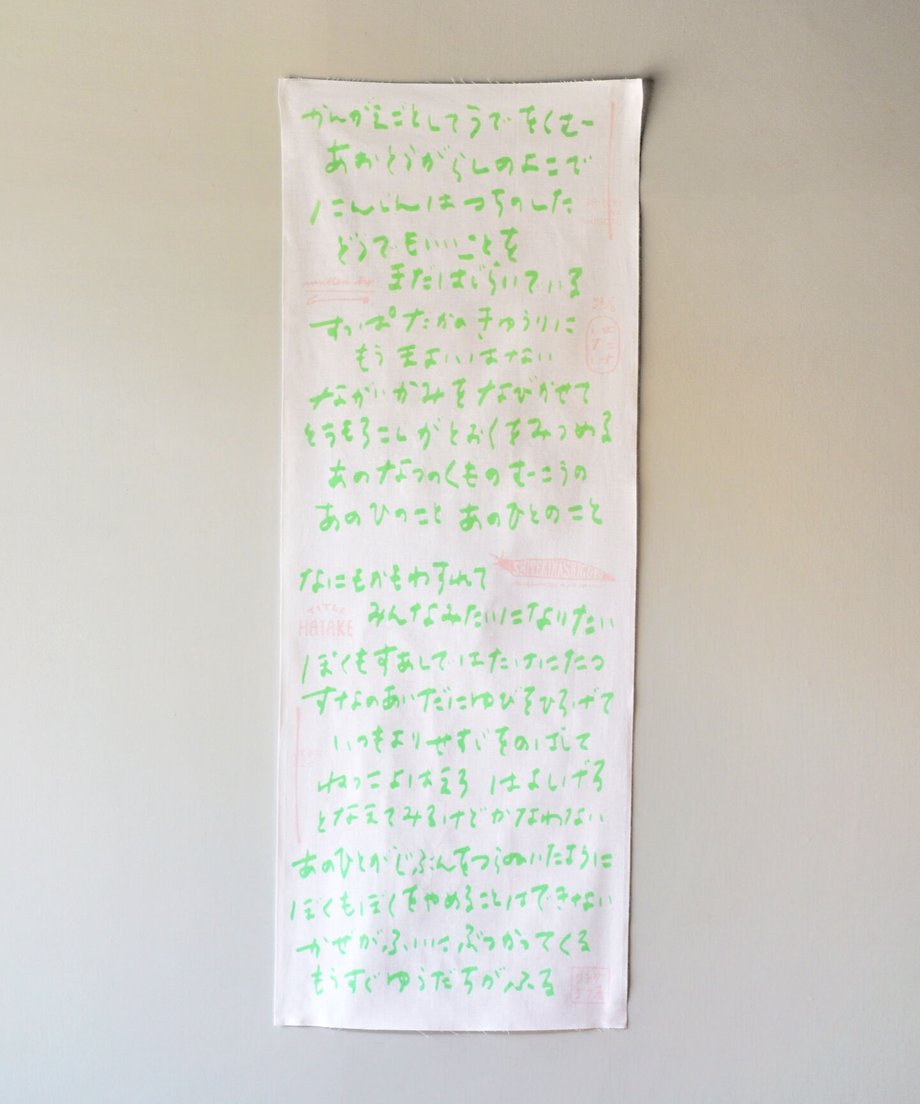 かんがえごとしてうでをくむー
あおとうがらしのよこで
にんじんはつちのした
どうでもいいことを
まだはじらいている
すっぱだかのきゅうりに
もうまよいはない
ながいかみをなびかせて
とうもろこしがとおくをみつめる
あのなつのくものむーこうの
あのひのこと あのひとのこと
なにもかもわすれて
みんなみたいになりたい
TITLE
HATAKE
ぼくもすあしではたけにたつ
すなのあいだにゆびをひろげて
いつもよりせすじをのばして
ねっこよはえろ はよしげろ
となえてみるけどかなわない
あのひとがじぶんをつらぬいたように
ぼくもぼくをやめることはできない
かぜがふいにぶつかってくる
もうすぐゆうだちがふる